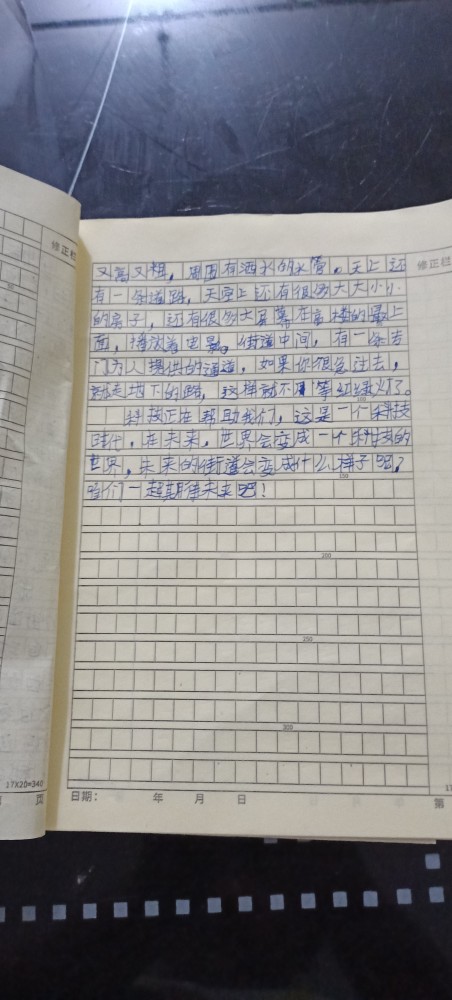 修正栏
修正栏
又高又粗，周围有洒水的水管。天上还
有一条道路，天空上还有很多大大小小
的扇子，还有很多大屏幕在高楼的最上
面，播放着电影。街道中间，有一条专
门为人提供的通道，如果你很急过去，
就走地下的路，这样就不用等红绿灯了。
100
科技正在帮助我们，这是一个科技
时代，在未来，世界会变成一个科技的
世界，未来的街道会变成什么样子呢？
150
咱们一起期待未来吧！
200
250
300
17X20=340
页
日期： 年 月 日
第
17